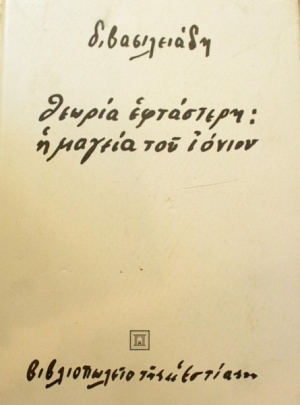 δ. βασιλειάδη
θεωρία ἑφτάστερη:
ἡ μαγεία τοῦ ἰόνιου
βιβλιοπωλεῖο τῆς ἑστίας